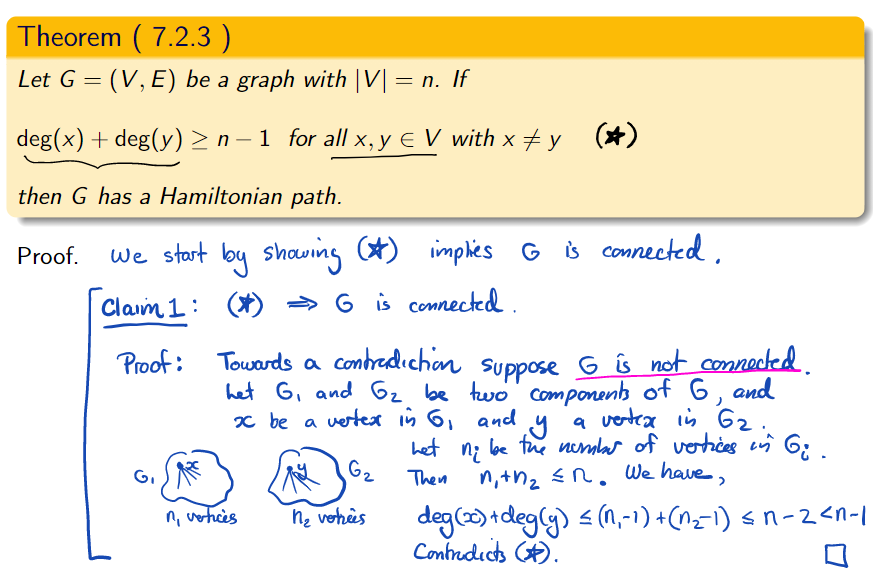 Theorem ( 7.2.3 )
Let G = (V, E) be a graph with |V| = n. If
deg(x) + deg(y) ≥ n − 1 for all x, y ∈ V with x ≠ y (★)
then G has a Hamiltonian path.
Proof. We start by showing (★) implies G is connected.
Claim 1: (★) ⇒ G is connected.
Proof: Towards a contradiction suppose G is not connected.
Let G₁ and G₂ be two components of G, and
x be a vertex in G₁ and y a vertex in G₂.
Let nᵢ be the number of vertices in Gᵢ.
G₁ x y G₂ Then n₁+n₂ ≤ n. We have,
n₁ vertices n₂ vertices deg(x)+deg(y) ≤ (n₁-1)+(n₂-1) ≤ n-2 < n-1
Contradicts (★). □